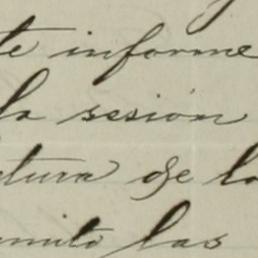 te informe
la sesion
tura de la
mito las